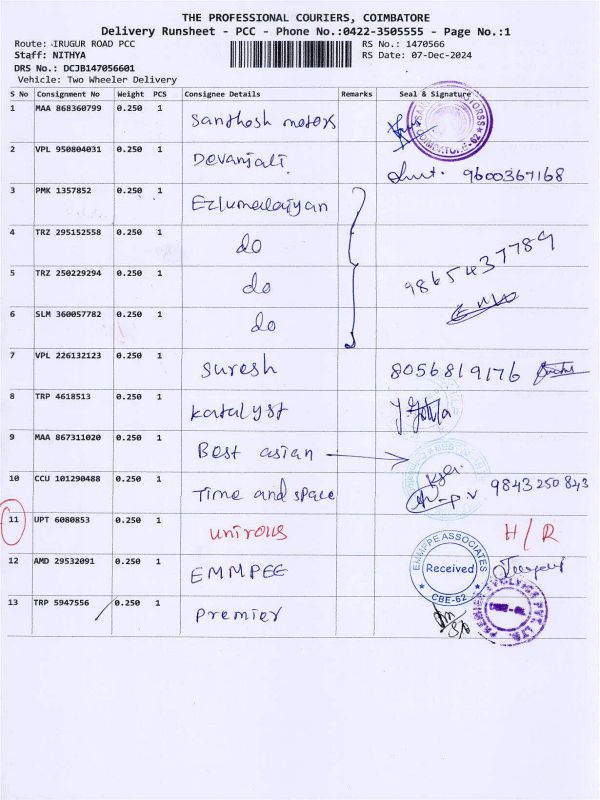 THE PROFESSIONAL COURIERS, COIMBATORE
Delivery Runsheet - PCC - Phone No.:0422-3505555 - Page No.:1
Route: IRUGUR ROAD PCC
RS No.: 1470566
Staff: NITHYA
RS Date: 07-Dec-2024
DRS No.: DCJB147056601
Vehicle: Two Wheeler Delivery
S No Consignment No Weight PCS Consignee Details Remarks Seal & Signature
1 MAA 868360799 0.250 1 Santhosh motors
COIMBATORE-62
2 VPL 950804031 0.250 1 Devanjali 9600367168
3 PMK 1357852 0.250 1 Ezlumalaiyan
4 TRZ 295152558 0.250 1 do 9865437789
5 TRZ 250229294 0.250 1 do
6 SLM 360057782 0.250 1 do
7 VPL 226132123 0.250 1 suresh 8056819176
8 TRP 4618513 0.250 1 katalyst
9 MAA 867311020 0.250 1 Best asian
10 CCU 101290488 0.250 1 Time and space 9843250843
11 UPT 6080853 0.250 1 unirols H/R
12 AMD 29532091 0.250 1 EMMPEE
EMMPPE ASSOCIATES
Received
CBE-62
13 TRP 5947556 0.250 1 premier